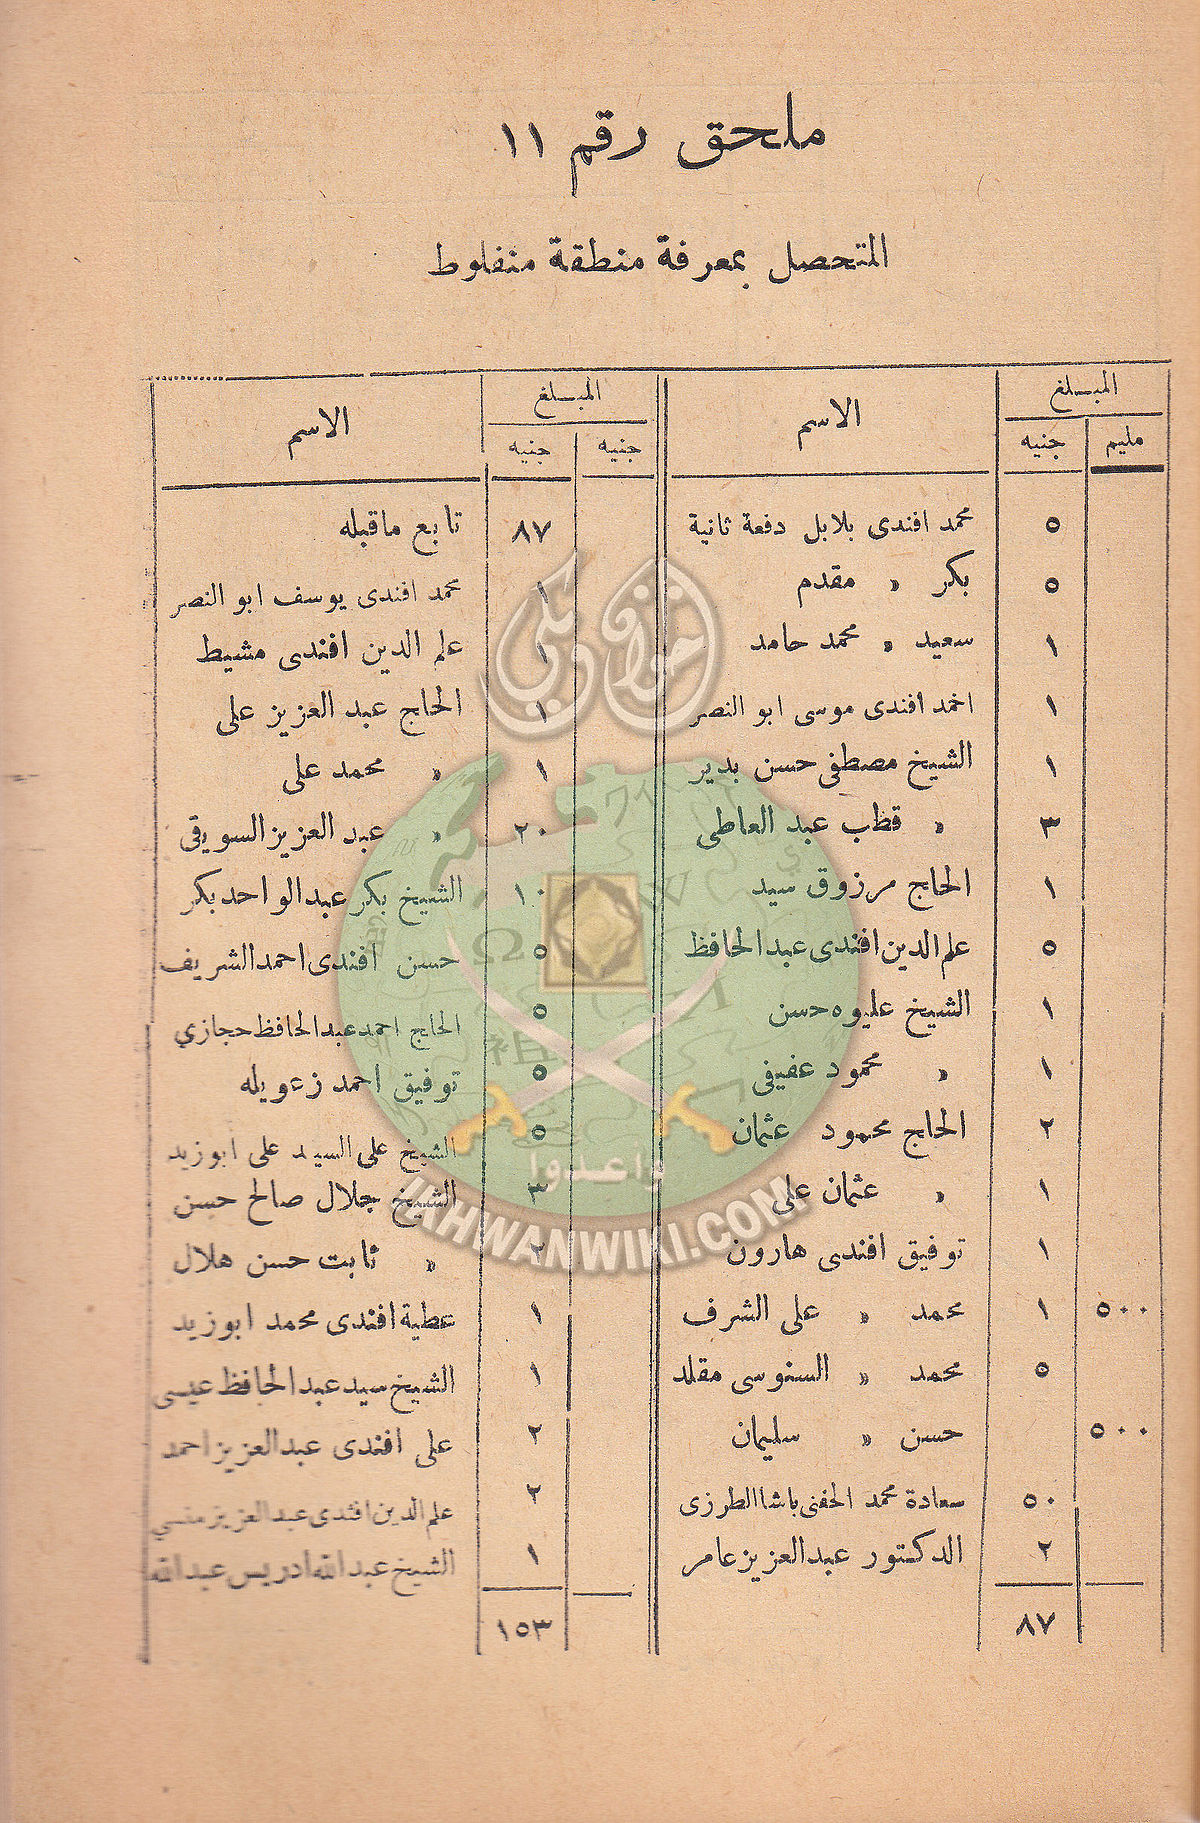 ملحق رقم ١١
المتحصل بمعرفة منطقة منفلوط
المبلغ الاسم المبلغ الاسم
مليم جنيه جنيه جنيه
٥ محمد افندى بلابل دفعة ثانية
٥ بكر » مقدم
١ سعيد » محمد حامد
١ احمد افندى موسى ابو النصر
١ الشيخ مصطفى حسن بدير
٣ » قطب عبد العاطى
١ الحاج مرزوق سيد
٥ علم الدين افندى عبد الحافظ
١ الشيخ عليوه حسن
١ » محمود عفيفى
٢ الحاج محمود عثمان
١ » عثمان على
١ توفيق افندى هارون
٥٠٠ ١ محمد » على الشرف
٥ محمد » السنوسى مقلد
٥٠٠ حسن » سليمان
٥٠ سعادة محمد الحفنى باشا الطرزى
٢ الدكتور عبد العزيز عامر
٨٧
٨٧ تابع ماقبله
١ محمد افندى يوسف ابو النصر
١ علم الدين افندى مشيط
١ الحاج عبد العزيز على
١ » محمد على
٢٠ » عبد العزيز السويفى
١٠ الشيخ بكر عبد الواحد بكر
٥ حسن افندى احمد الشريف
٥ الحاج احمد عبد الحافظ حجازي
٥ توفيق احمد زعويله
٥ الشيخ على السيد على ابوزيد
٣ الشيخ جلال صالح حسن
٢ » ثابت حسن هلال
١ عطية افندى محمد ابوزيد
١ الشيخ سيد عبد الحافظ عيسى
٢ على افندى عبد العزيز احمد
٢ علم الدين افندى عبد العزيز منسي
١ الشيخ عبد الله ادريس عبد الله
١٥٣
إخوان ويكي
وأعدوا
IKHWANWIKI.COM